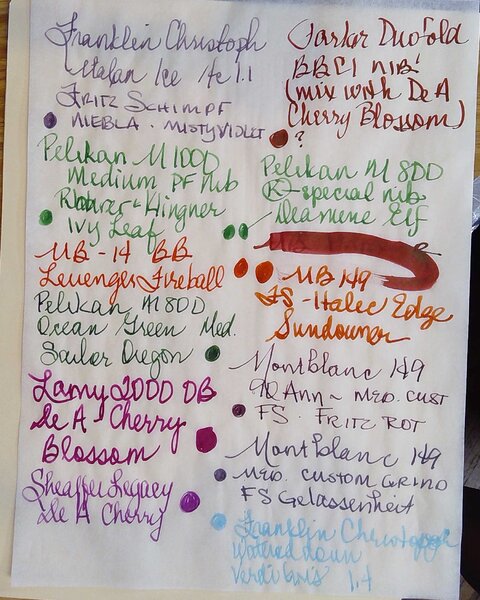 Franklin Christoph
Italian Ice
1.1
Fritz Schimpf
Niebla - Misty Violet
Pelikan M1000
Medium PF nib
Rohrer + Klingner
Ivy Leaf
MB-14 BB
Levenger Fireball
Pelikan M800
Ocean Green Med.
Sailor Oregon
Lamy 2000 DB
De A - Cherry
Blossom
Sheaffer Legacy
De A Cherry
Parker Duofold
nib
(mix with De A
Cherry Blossom)
?
Pelikan M800
R-special nib
Deamine Elf
MB 149
FS - Italic Edge
Sundowner
Montblanc 149
90 Ann - Med. Cust
FS. Fritz Rot
Montblanc 149
Med. Custom Grind
FS Gelassenheit
Franklin
Watered down